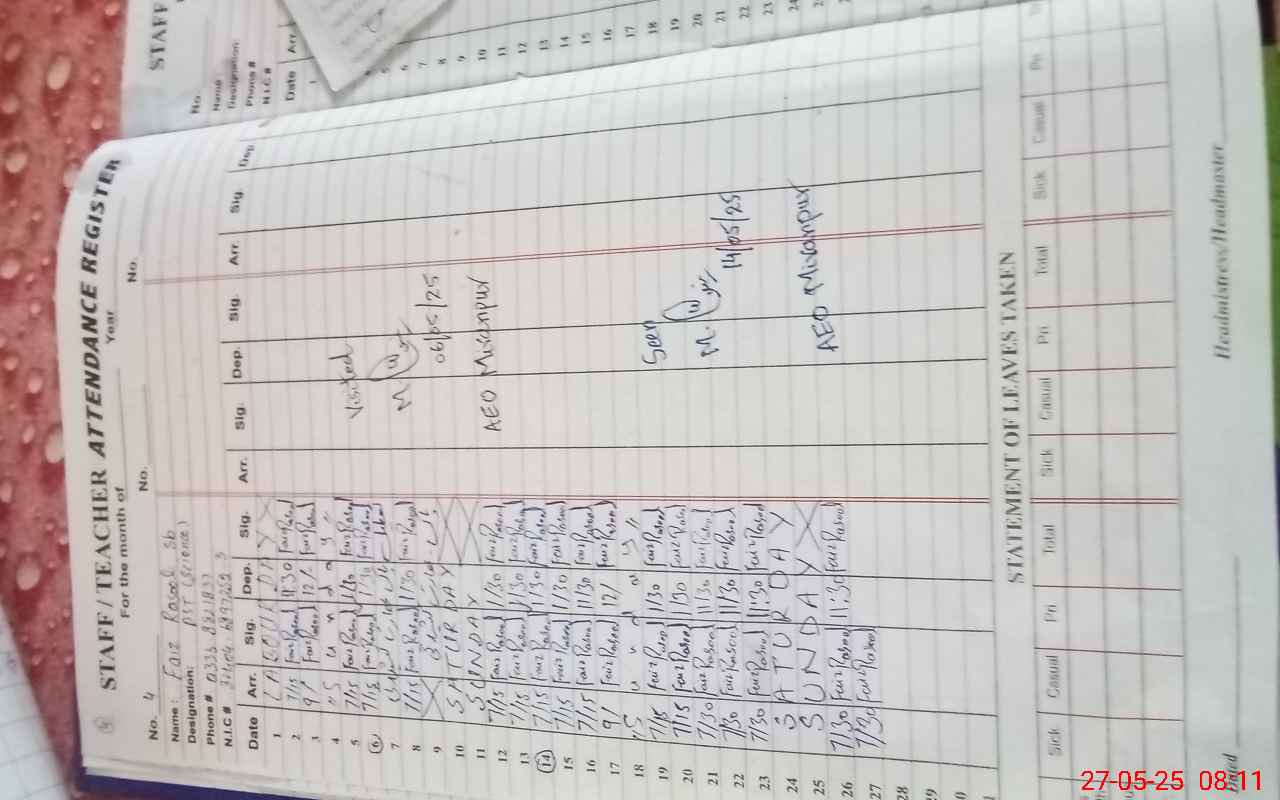 STAFF / TEACHER ATTENDANCE REGISTER
For the month of Year
No. 4 No. No.
Name : Faiz Rasool Sb
Designation: PST (Science)
Phone #
N.I.C #
Date Arr. Sig. Dep. Sig. Arr. Sig. Dep. Sig. Arr. Sig. Dep
1 LABOUR DAY
2 7/15 Faiz Rasool 11:30 Faiz Rasool
3 9/ Faiz Rasool 12/ Faiz Rasool
4 "S u n d a y"
5 7/15 Faiz Rasool 1/30 Faiz Rasool
6 7/15 Faiz Rasool 1/30 Faiz Rasool
7
8 7/15 Faiz Rasool 1/30 Faiz Rasool
9
10 SATURDAY
11 SUNDAY
12 7/15 Faiz Rasool 1/30 Faiz Rasool
13 7/15 Faiz Rasool 1/30 Faiz Rasool
14 7/15 Faiz Rasool 1/30 Faiz Rasool
15 7/15 Faiz Rasool 1/30 Faiz Rasool
16 7/15 Faiz Rasool 11/30 Faiz Rasool
17 9/ Faiz Rasool 12/ Faiz Rasool
18 "S u n d a y"
19 7/15 Faiz Rasool 1/30 Faiz Rasool
20 7/15 Faiz Rasool 1/30 Faiz Rasool
21 7/30 Faiz Rasool 11/30 Faiz Rasool
22 7/30 Faiz Rasool 11/30 Faiz Rasool
23 7/30 Faiz Rasool 11:30 Faiz Rasool
24 SATURDAY
25 SUNDAY
26 7/30 Faiz Rasool 11:30 Faiz Rasool
27 7/30 Faiz Rasool
28
29
Visited
06/05/25
AEO Miranpur
Seen
14/05/25
AEO Miranpur
STATEMENT OF LEAVES TAKEN
Sick Casual Pri Total Sick Casual Pri Total Sick Casual Pri
Dated
Headmistress/Headmaster
STAFF
No.
Name
Designation:
Phone #
N.I.C #
Date Arr.
1
5
6
7
8
9
10
11
12
13
14
15
16
17
18
19
20
21
22
23
24
27-05-25 08:11